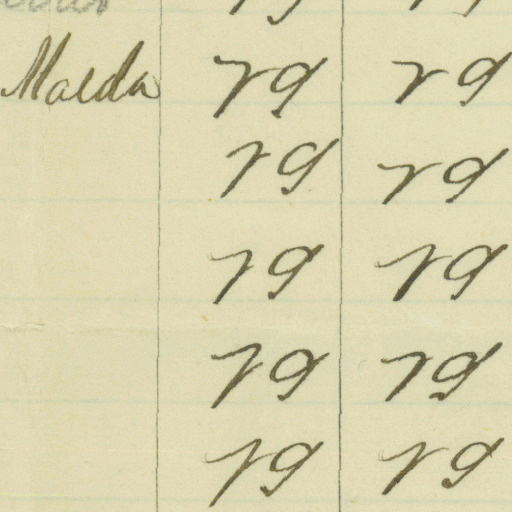 Malda 79 79
79 79
79 79
79 79
79 79